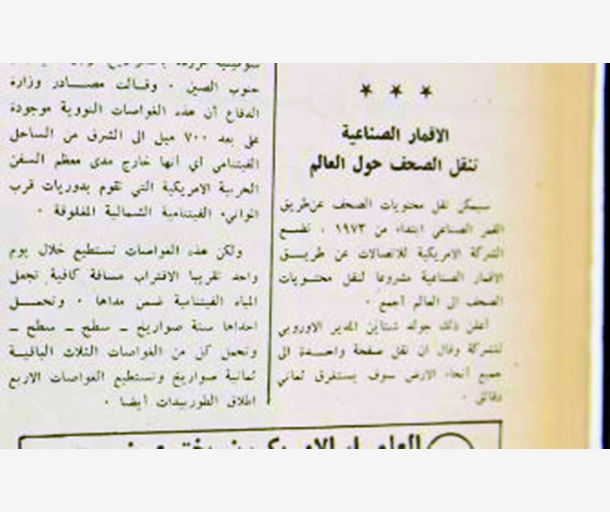 * * *
الاقمار الصناعية
تنقل الصحف حول العالم
سيمكن نقل محتويات الصحف عن طريق
القمر الصناعي ابتداء من ١٩٧٣ . تضع
الشركة الامريكية للاتصالات عن طريق
الاقمار الصناعية مشروعا لنقل محتويات
الصحف الى العالم أجمع .
أعلن ذلك جوله شتاين المدير الاوروبي
للشركة وقال ان نقل صفحة واحدة الى
جميع أنحاء الارض سوف يستغرق ثماني
دقائق .
جنوب الصين . وقالت مصادر وزارة
الدفاع أن هذه الغواصات النووية موجودة
على بعد ٧٠٠ ميل الى الشرق من الساحل
الفيتنامي اي أنها خارج مدى معظم السفن
الحربية الامريكية التي تقوم بدوريات قرب
الموانىء الفيتنامية الشمالية المغلوقة .
ولكن هذه الغواصات تستطيع خلال يوم
واحد تقريبا الاقتراب مسافة كافية تجعل
المياه الفيتنامية ضمن مداها . وتحمل
احداها ستة صواريخ ــ سطح ــ سطح ــ
وتحمل كل من الغواصات الثلاث الباقية
ثمانية صواريخ وتستطيع الغواصات الاربع
اطلاق الطوربيدات أيضا .